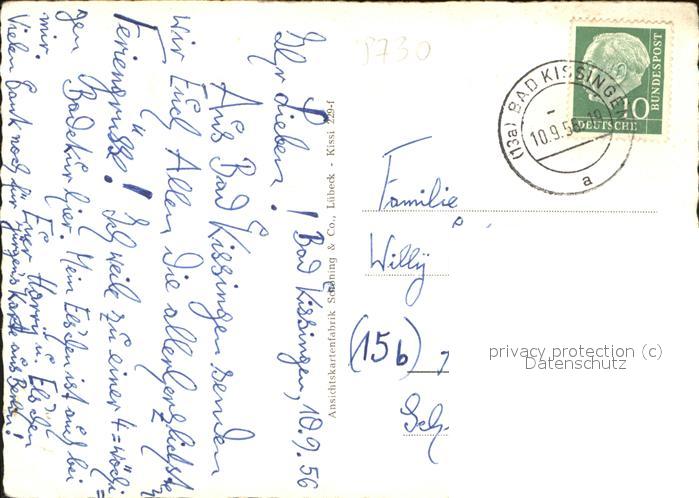 Ihr Lieben! Bad Kissingen, 10.9.56
Aus Bad Kissingen senden
wir Euch Allen die allerherzlichste
Feriengrüsse! Ich weile zu einer 4=wöchi=
gen Badekur hier. Mein Elschen ist auch bei
mir. Eu. Harry u. Elschen
Vielen Dank noch für Eure Karte aus Berlin!
Ansichtskartenfabrik Schöning & Co., Lübeck · Kissi 229-f
5730
(13a) BAD KISSINGEN
10.9.56
a
10
DEUTSCHE
BUNDESPOST
Familie
Willy
(15b)
privacy protection (c)
Datenschutz